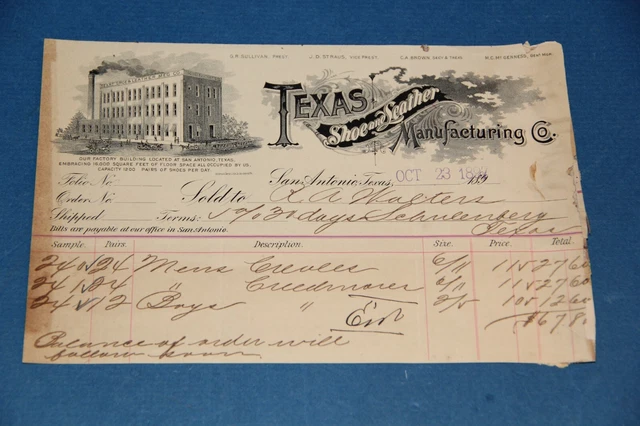 S.P. SULLIVAN, PREST. J.D. STRAUS, VICE PREST. C.A. BROWN, SECY & TREAS.
TEXAS Shoe and Leather Manufacturing Co.
OUR FACTORY BUILDING LOCATED AT SAN ANTONIO, TEXAS,
EMBRACING 16,000 SQUARE FEET OF FLOOR SPACE ALL OCCUPIED BY US.
CAPACITY 1200 PAIRS OF SHOES PER DAY.
San Antonio, Texas, OCT 23 189
Folio No
Order No Sold to Walters
Shipped Terms: 30 days Schulenberg
Texas
Bills are payable at our office in San Antonio.
Sample. Pairs. Description. Size. Price. Total.
240 24 Mens Creoles 6/11 115 27 60
241 24 " Creedmoor 6/11 115 27 60
24 12 Boys " 2/5 105 12 60
$67.80
Balance of order will
follow soon